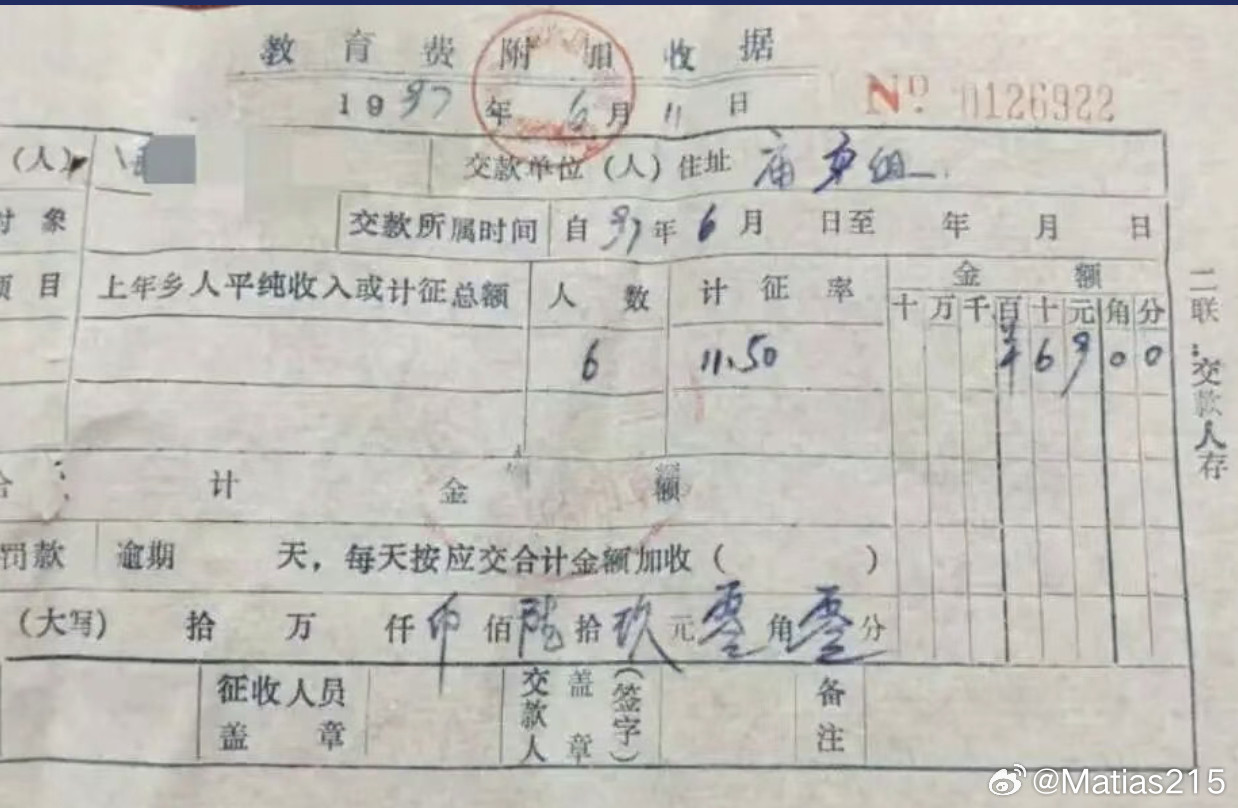 教育费附加收据
1997年6月11日
№ 0126922
(人) 交款单位(人)住址 庙东组
对象 交款所属时间 自97年6月 日至 年 月 日
项目 上年乡人平纯收入或计征总额 人数 计征率 金额
十万千百十元角分
6 11.50 ¥69 00
合计金额
罚款 逾期 天,每天按应交合计金额加收( )
(大写) 拾 万 仟 佰陆拾玖元零角零分
征收人员盖章 交款人盖章(签字) 备注
二联:交款人存
@Matias215